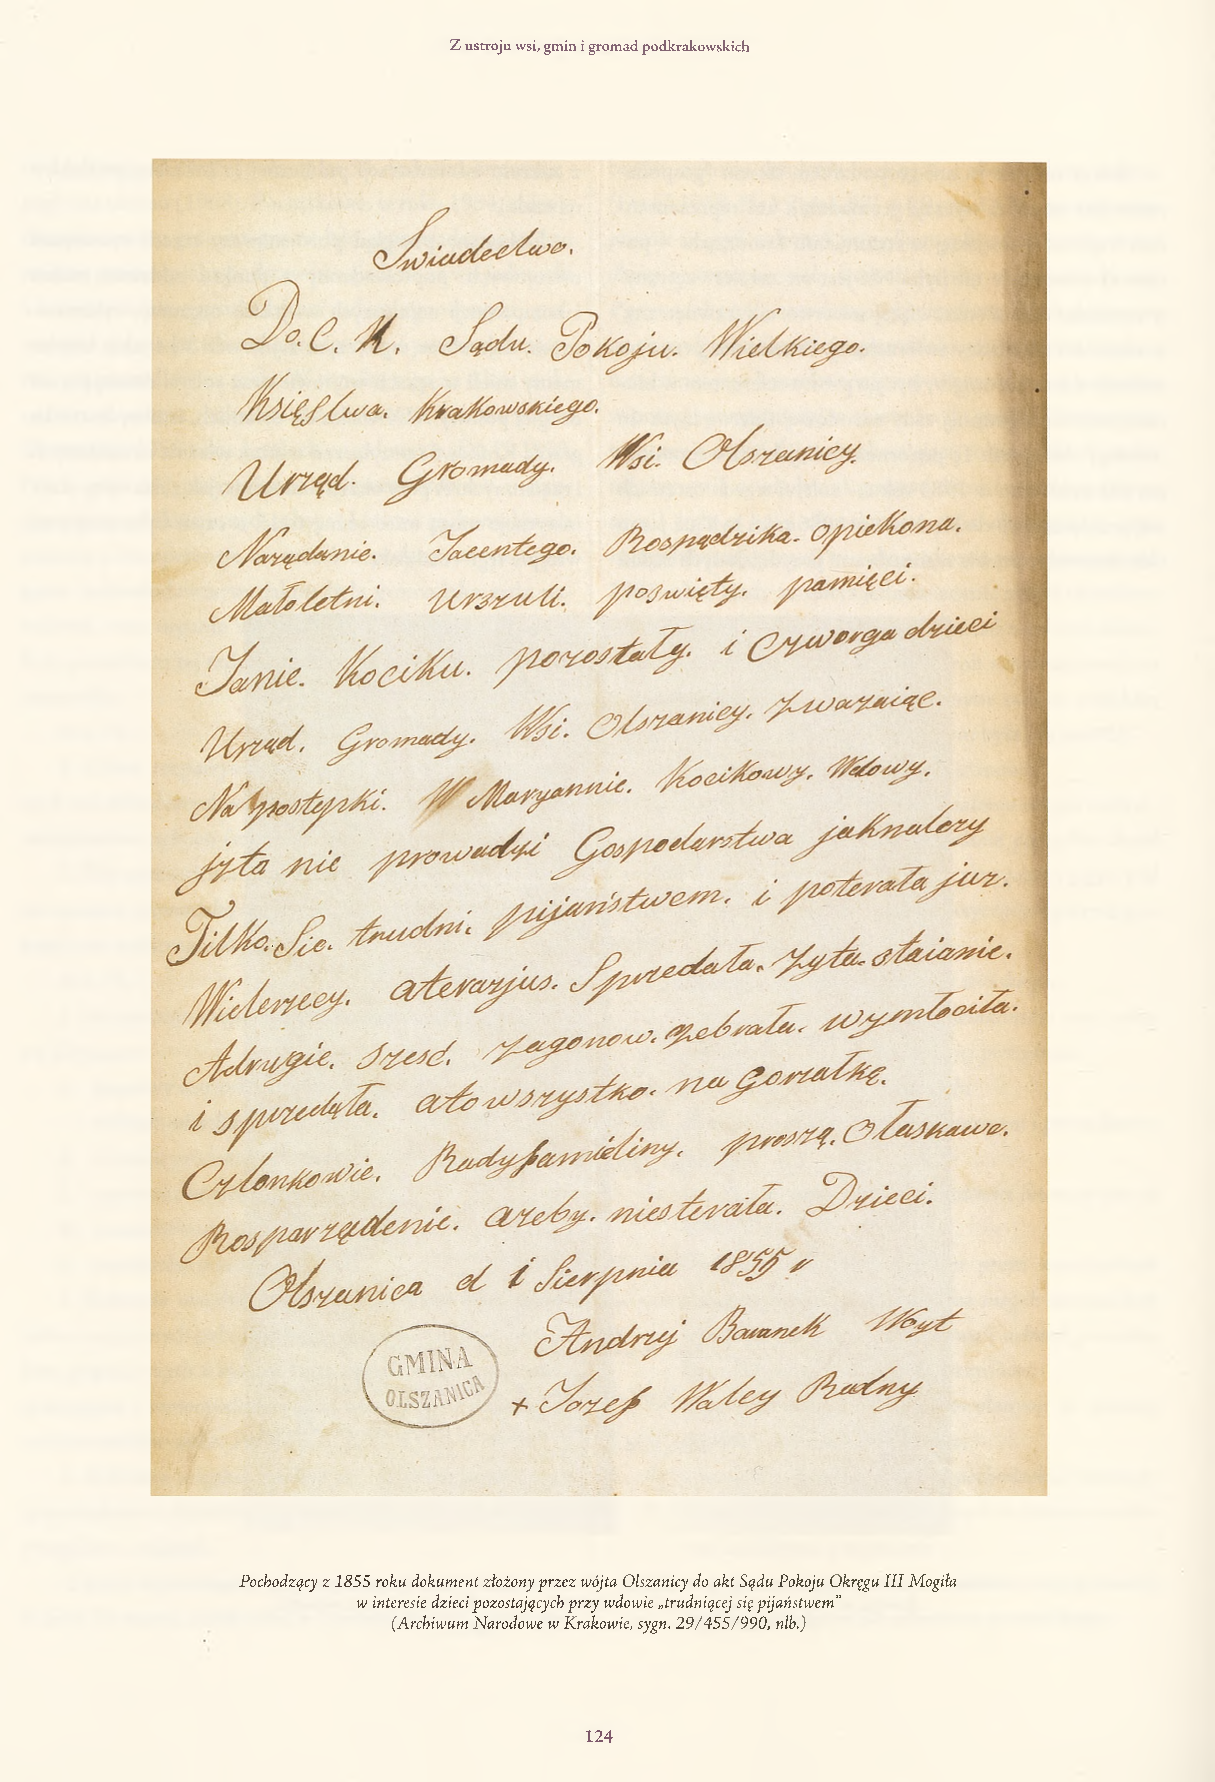 Z ustroju wsi, gmin i gromad podkrakowskich
Swiadectwo.
Do. C. K. Sądu. Pokoju. Wielkiego.
Księstwa. Krakowskiego.
Urząd. Gromady. Wsi. Olszanicy.
Narządanie. Jacentego. Rospądzika. opiekona.
Małoletni. Urszuli. poswięty. pamięci.
Janie. Kociku. pozostały. i Czworga dzieci
Urząd. Gromady. Wsi. Olszanicy. zwazaiąc.
Na postępki. W Maryannie. Kocikowy. Wdowy.
jzta nie prowadzi Gospodarstwa jaknalezy
Tilko. Sie. trudni. pijaństwem. i poterała juz.
Wielerzecy. aterazjus. Sprzedała. zyta. staianie.
Adrugie. szesć. zagonow. zebrała. wzmłociła.
i sprzedała. ato wszystko. na gorzałkę.
Członkowie. Rady familiny. proszą. Ołaskawe.
Rosparządenie. azeby. niesterała. Dzieci.
Olszanica d 1 Sierpnia 1855 r
Andrzej Baranek Woyt
GMINA
OLSZANICA
+ Jozef Waley Radny
Pochodzący z 1855 roku dokument złożony przez wójta Olszanicy do akt Sądu Pokoju Okręgu III Mogiła
w interesie dzieci pozostających przy wdowie „trudniącej się pijaństwem”
(Archiwum Narodowe w Krakowie, sygn. 29/455/990, nlb.)
124